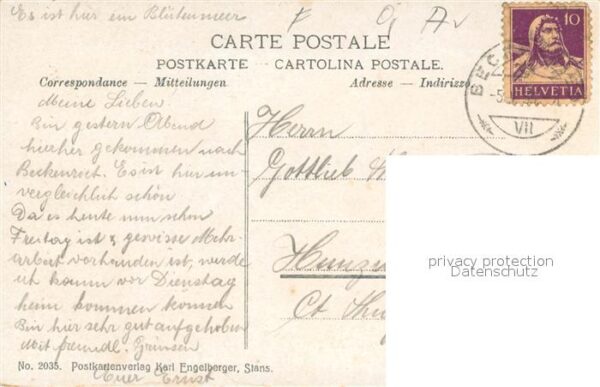 Es ist hier ein Blütenmeer
CARTE POSTALE
POSTKARTE — CARTOLINA POSTALE.
Correspondance — Mitteilungen
Adresse — Indirizzo
10
HELVETIA
BECK
VII
Meine Lieben
Bin gestern Abend
hierher gekommen nach
Beckenried. Es ist hier un-
vergleichlich schön
Da es heute nun schon
Freitag ist & gewisse Mehr-
arbeit vorhanden ist, werde
ich kaum vor Dienstag
heim kommen können
Bin hier sehr gut aufgehoben
mit freundl. Grüssen
Euer Ernst
Herrn
Gottlieb
Ct. Thurg
privacy protection
Datenschutz
No. 2035. Postkartenverlag Karl Engelberger, Stans.